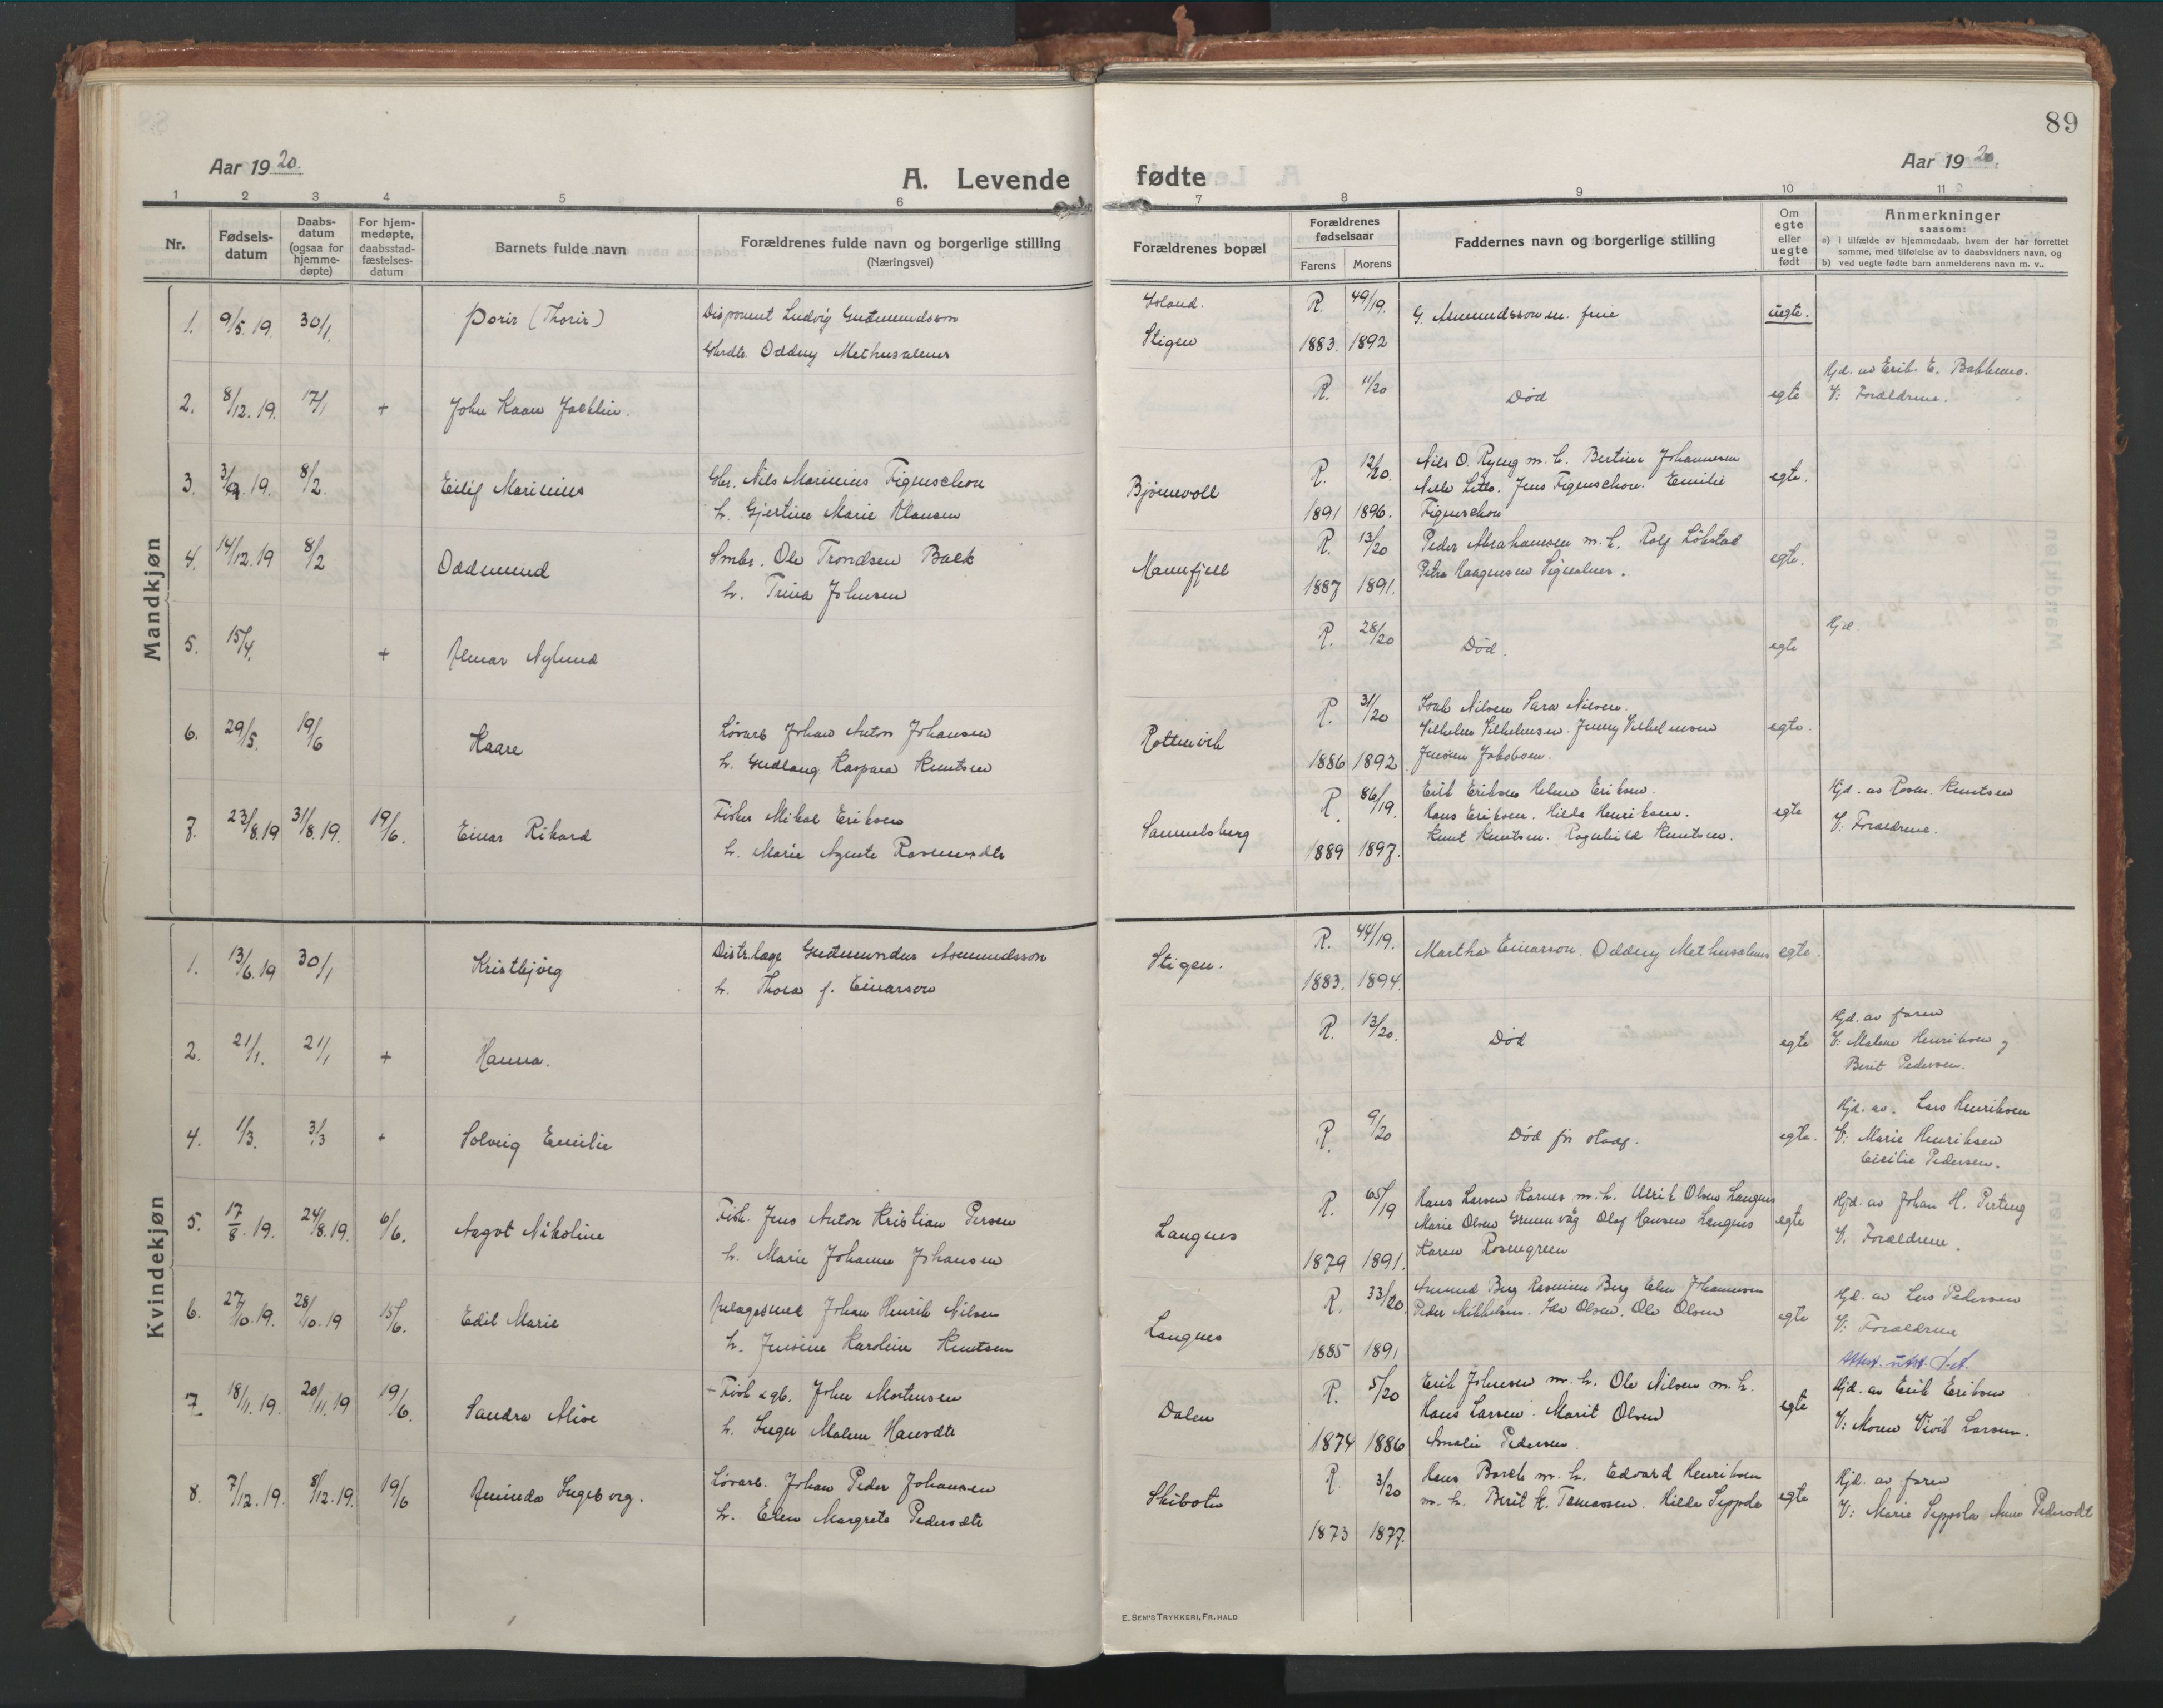 89
Aar 1920.
A. Levende
fødte
Aar 1920
1 2 3 4 5 6 7 8 9 10 11
Nr.
Fødsels-
datum
Daabs-
datum
(ogsaa for
hjemme-
døpte)
For hjem-
medøpte,
daabsstad-
fæstelses-
datum
Barnets fulde navn
Forældrenes fulde navn og borgerlige stilling
(Næringsvei)
Forældrenes bopæl
Forældrenes
fødselsaar
Farens Morens
Faddernes navn og borgerlige stilling
Om
egte
eller
uegte
født
Anmerkninger
saasom:
a) I tilfælde av hjemmedaab, hvem der har forrettet
samme, med tilføielse av to daabsvidners navn, og
b) ved uegte fødte barn anmelderens navn m. v..
Mandkjøn
1. 9/5. 19. 30/1. Þorir (Thorir) Disponent Ludvig Gudmundsson
Oddny Methusalems
Island. Stigen R. 49/19. 1883. 1892 G. Amundsson m. frue uegte.
2. 8/12. 19. 17/1 + John Kaare R. 11/20 Død egte Hjd. av Erik E.
V: Forældrene.
3. 19. 8/2. Eilif Marinius Gbr. Nils Marinius Figenschou
h. Gjertine Marie Hansen
Bjørnevoll R. 12/20. 1891 1896. Nils O. Ryeng m. h. Bertine Johannesen
Jens Figenschou. Emilie
Figenschou egte.
4. 14/12. 19 8/2 Oddmund Smbr. Ole Trondsen Back
h. Trina Johnsen
R. 13/20 1887 1891. Peder Abrahamsen m. h. Rolf
Petra Haagensen egte.
5. 15/4. + Nylund R. 28/20 Død. egte Hjd.
6. 29/5. 19/6 Kaare Løsarb Johan Anton Johansen
h. Gudlaug Kaspara Knutsen
Rottenvik R. 31/20 1886 1892 Isak Nilsen Sara Nilsen.
Vilhelm Vilhelmsen. Jenny Vilhelmsen
Jensine Jakobsen. egte.
7. 23/8. 19 31/8. 19. 19/6. Einar Rikard Fisker Mikal Eriksen
h. Marie Agnete
Samuelsberg R. 86/19. 1889 1897. Erik Eriksen Helene Eriksen.
Hans Eriksen. Hilda Henriksen.
Knut Knutsen. Ragnhild Knutsen. egte Hjd. av Knutsen
V: Forældrene.
Kvindekjøn
1. 13/6. 19 30/1 Kristbjörg Distr.læge Gudmundur Asmundsson
h. Thora f. Einarson
Stigen. R. 44/19. 1883. 1894. Martha Einarson. Oddny Methusalems egte.
2. 21/1. 21/1 + Hanna. R. 13/20. Død egte Hjd. av faren
V: Malene Henriksen og
Berit Pedersen.
4. 1/3. 3/3 + Solveig Emilie R. 9/20 Død før stadf. egte. Hjd. av. Lars Henriksen
V: Marie Henriksen
Cecilie Pedersen.
5. 17/8. 19. 24/8. 19. 6/6. Aagot Nikoline Fisk. Jens Anton Kristian Persen
h. Marie Johanne Johansen
Langnes R. 65/19 1879 1891. Hans Larsen Karnes m. h. Ulrik Olsen Langnes
Marie Olsen Olaf Hansen Langnes
Karen Rosengreen egte Hjd. av Johan H. Perteng
V. Forældrene.
6. 27/10. 19. 28/10. 19 15/6. Edil Marie Johan Henrik Nilsen
h. Jensine Karoline Knutsen
Langnes R. 33/20. 1885 1891 Amund Berg Rasmine Berg Elen Johannesen
Peder Mikkelsen. Olsen. Ole Olsen egte Hjd. av Lars Pedersen
V: Forældrene
7. 18/11. 19. 20/11. 19 19/6. Sandra Alise Fisk & gb. John Mortensen
h. Inger Malene Hansdtr
Dalen R. 5/20 1874 1886 Erik Johnsen m. h. Ole Nilsen m. h.
Hans Larsen. Marit Olsen
Amalie Pedersen. egte Hjd. av Erik Eriksen
V: Moren Larsen.
8. 7/12. 19. 8/12. 19. 19/6 Ingeborg. Løsarb. Johan Peder Johansen
h. Elen Margrete Pedersdtr
Skibotn R. 3/20 1873 1877. Hans Barck m. h. Edvard Henriksen
m. h. Berit K. Tomassen. Hilda Seppola egte Hjd. av faren
V: Marie Seppola Anna Pedersdtr
E. SEM'S TRYKKERI, FR.HALD